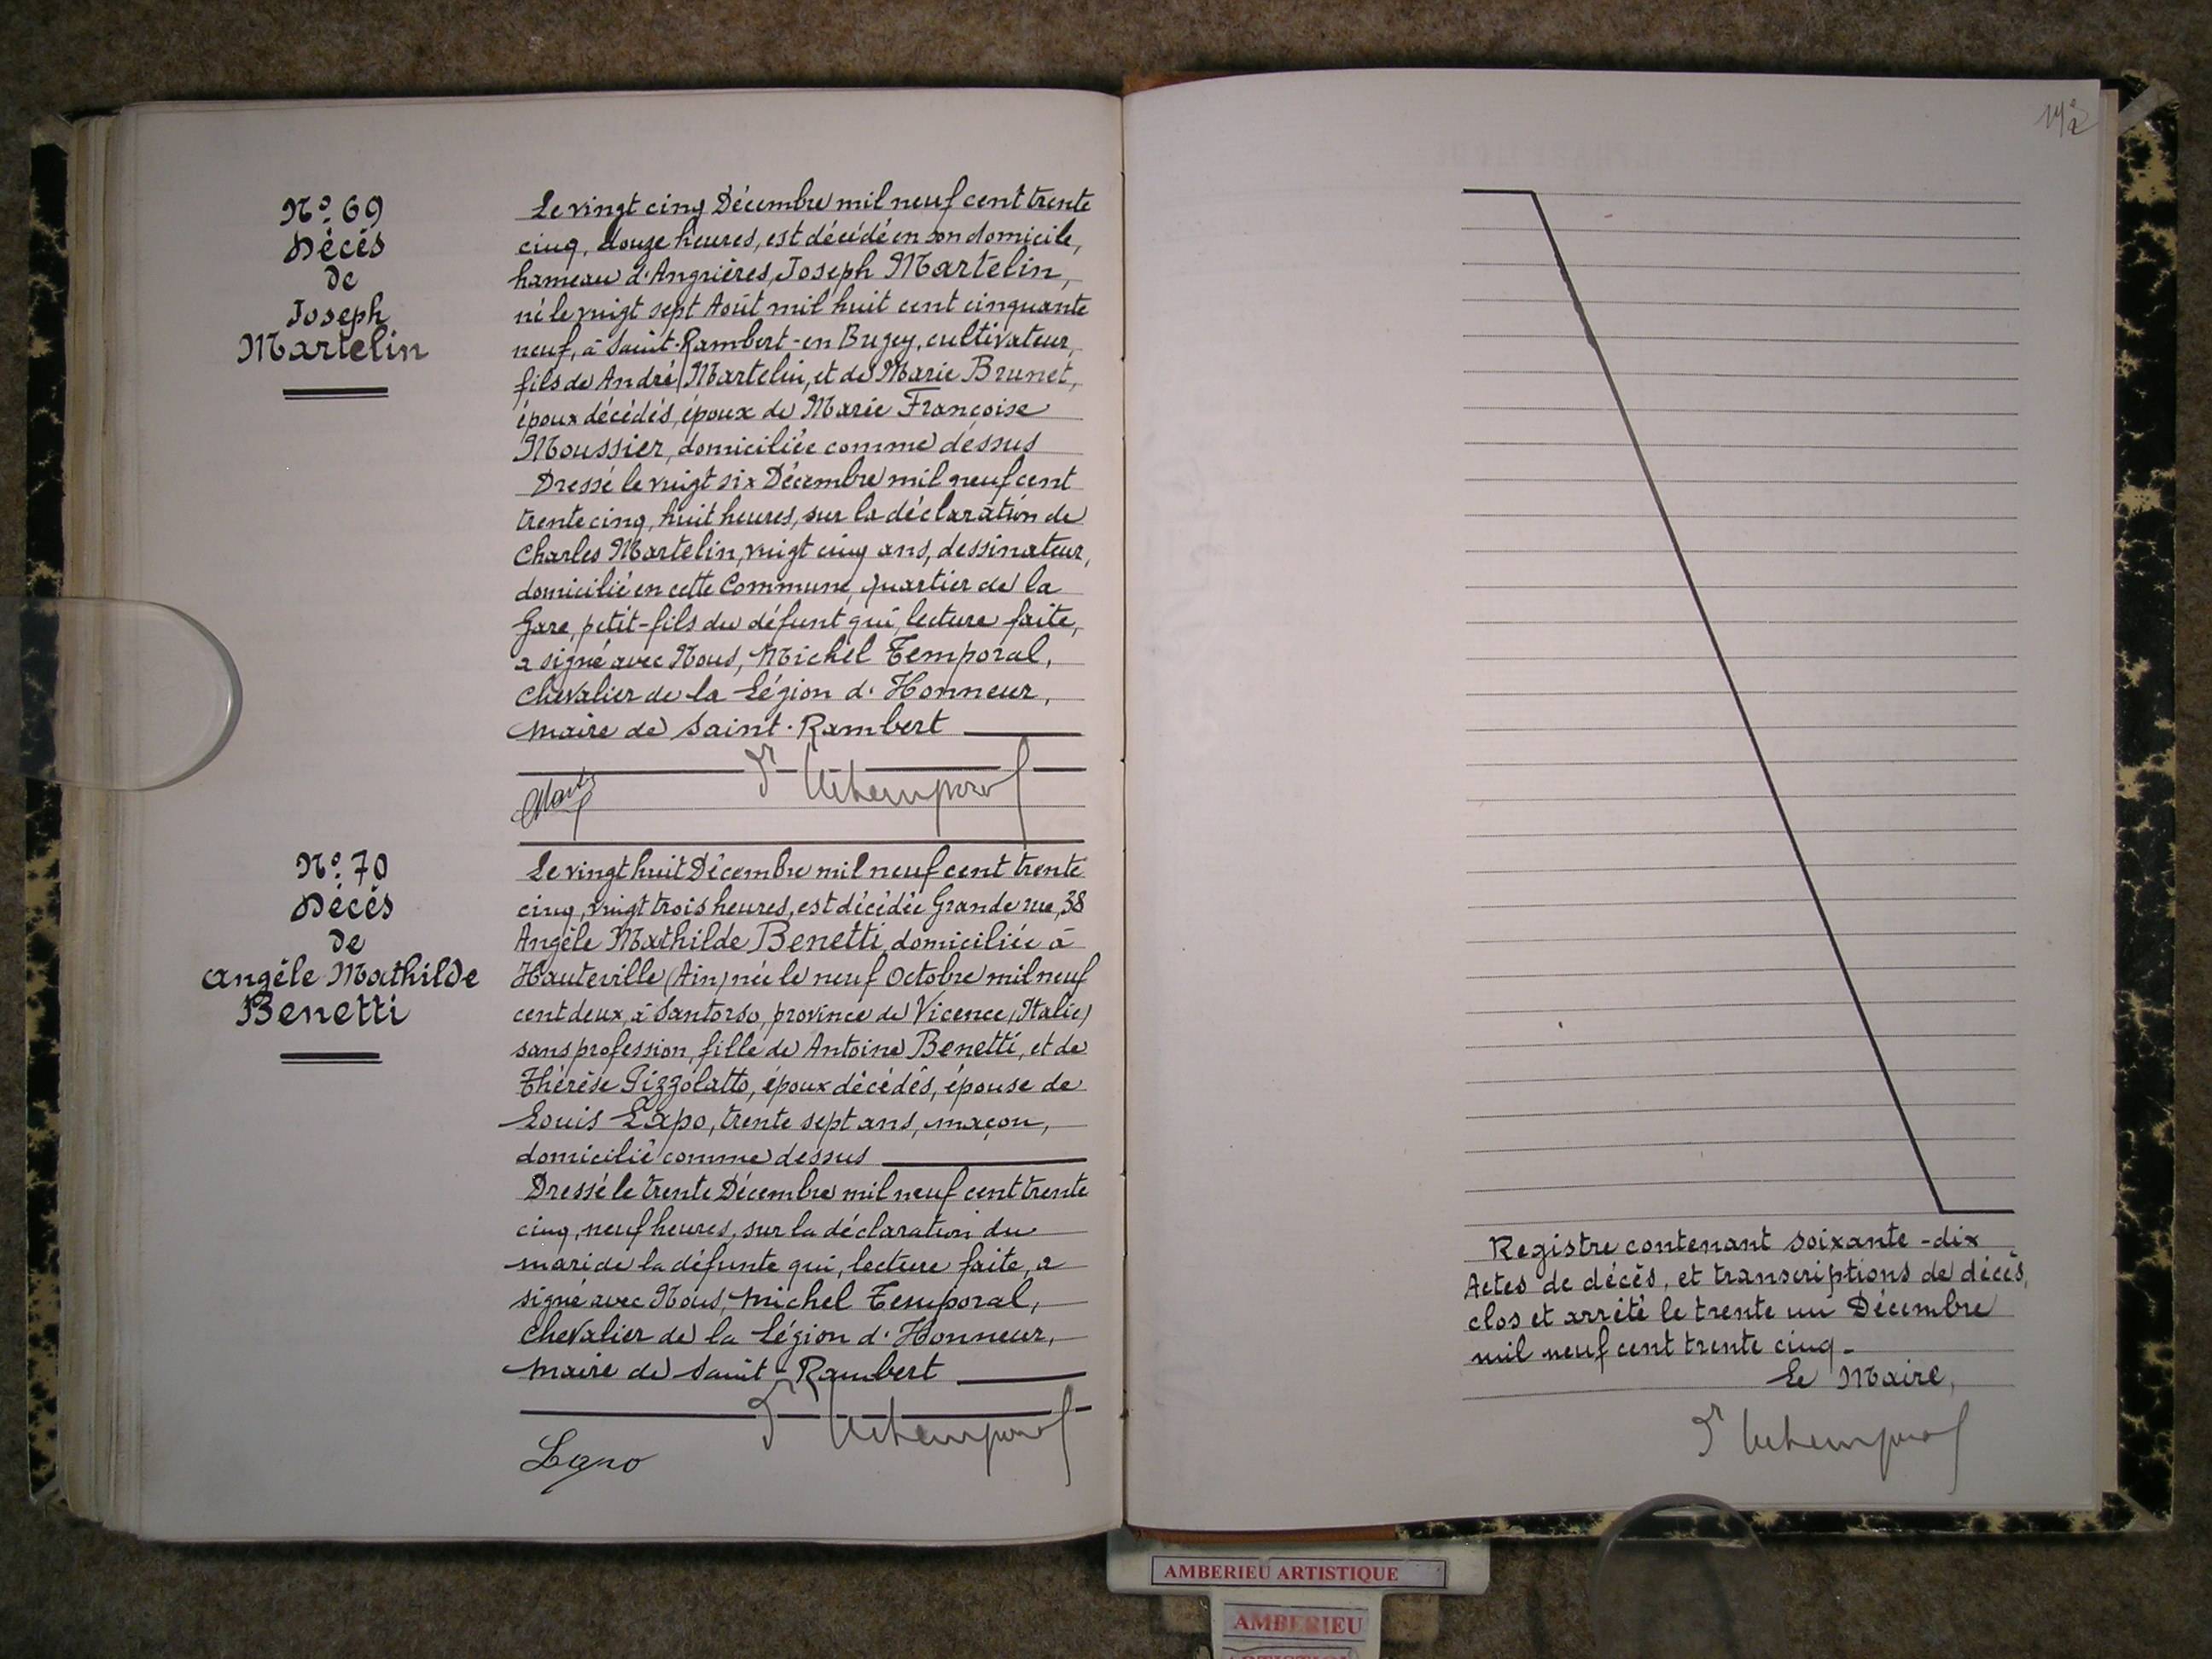 N° 69
Décès
de
Joseph
Martelin
Le vingt cinq Décembre mil neuf cent trente
cinq, douze heures, est décédé en son domicile,
hameau d'Angrières, Joseph Martelin,
né le vingt sept Août mil huit cent cinquante
neuf, à Saint-Rambert-en Bugey, cultivateur,
fils de André Martelin, et de Marie Brunet,
époux décédés, époux de Marie Françoise
Moussier, domiciliée comme dessus
Dressé le vingt six Décembre mil neuf cent
trente cinq, huit heures, sur la déclaration de
Charles Martelin, vingt cinq ans, dessinateur,
domicilié en cette Commune, quartier de la
Gare, petit-fils du défunt qui, lecture faite,
a signé avec Nous, Michel Temporal,
Chevalier de la Légion d'Honneur,
maire de Saint-Rambert
N° 70
Décès
de
Angèle Mathilde
Benetti
Le vingt huit Décembre mil neuf cent trente
cinq, vingt trois heures, est décédée Grande rue, 38
Angèle Mathilde Benetti, domiciliée à
Hauteville (Ain) née le neuf Octobre mil neuf
cent deux, à Santorso, province de Vicence (Italie)
sans profession, fille de Antoine Benetti, et de
Thérèse Pizzolatto, époux décédés, épouse de
Louis Lapo, trente sept ans, maçon,
domicilié comme dessus
Dressé le trente Décembre mil neuf cent trente
cinq, neuf heures, sur la déclaration du
mari de la défunte qui, lecture faite, a
signé avec Nous, Michel Temporal,
Chevalier de la Légion d'Honneur,
maire de Saint-Rambert
Registre contenant soixante-dix
Actes de décès, et transcriptions de décès,
clos et arrêté le trente un Décembre
mil neuf cent trente cinq.
Le Maire,
AMBERIEU ARTISTIQUE
AMBERIEU